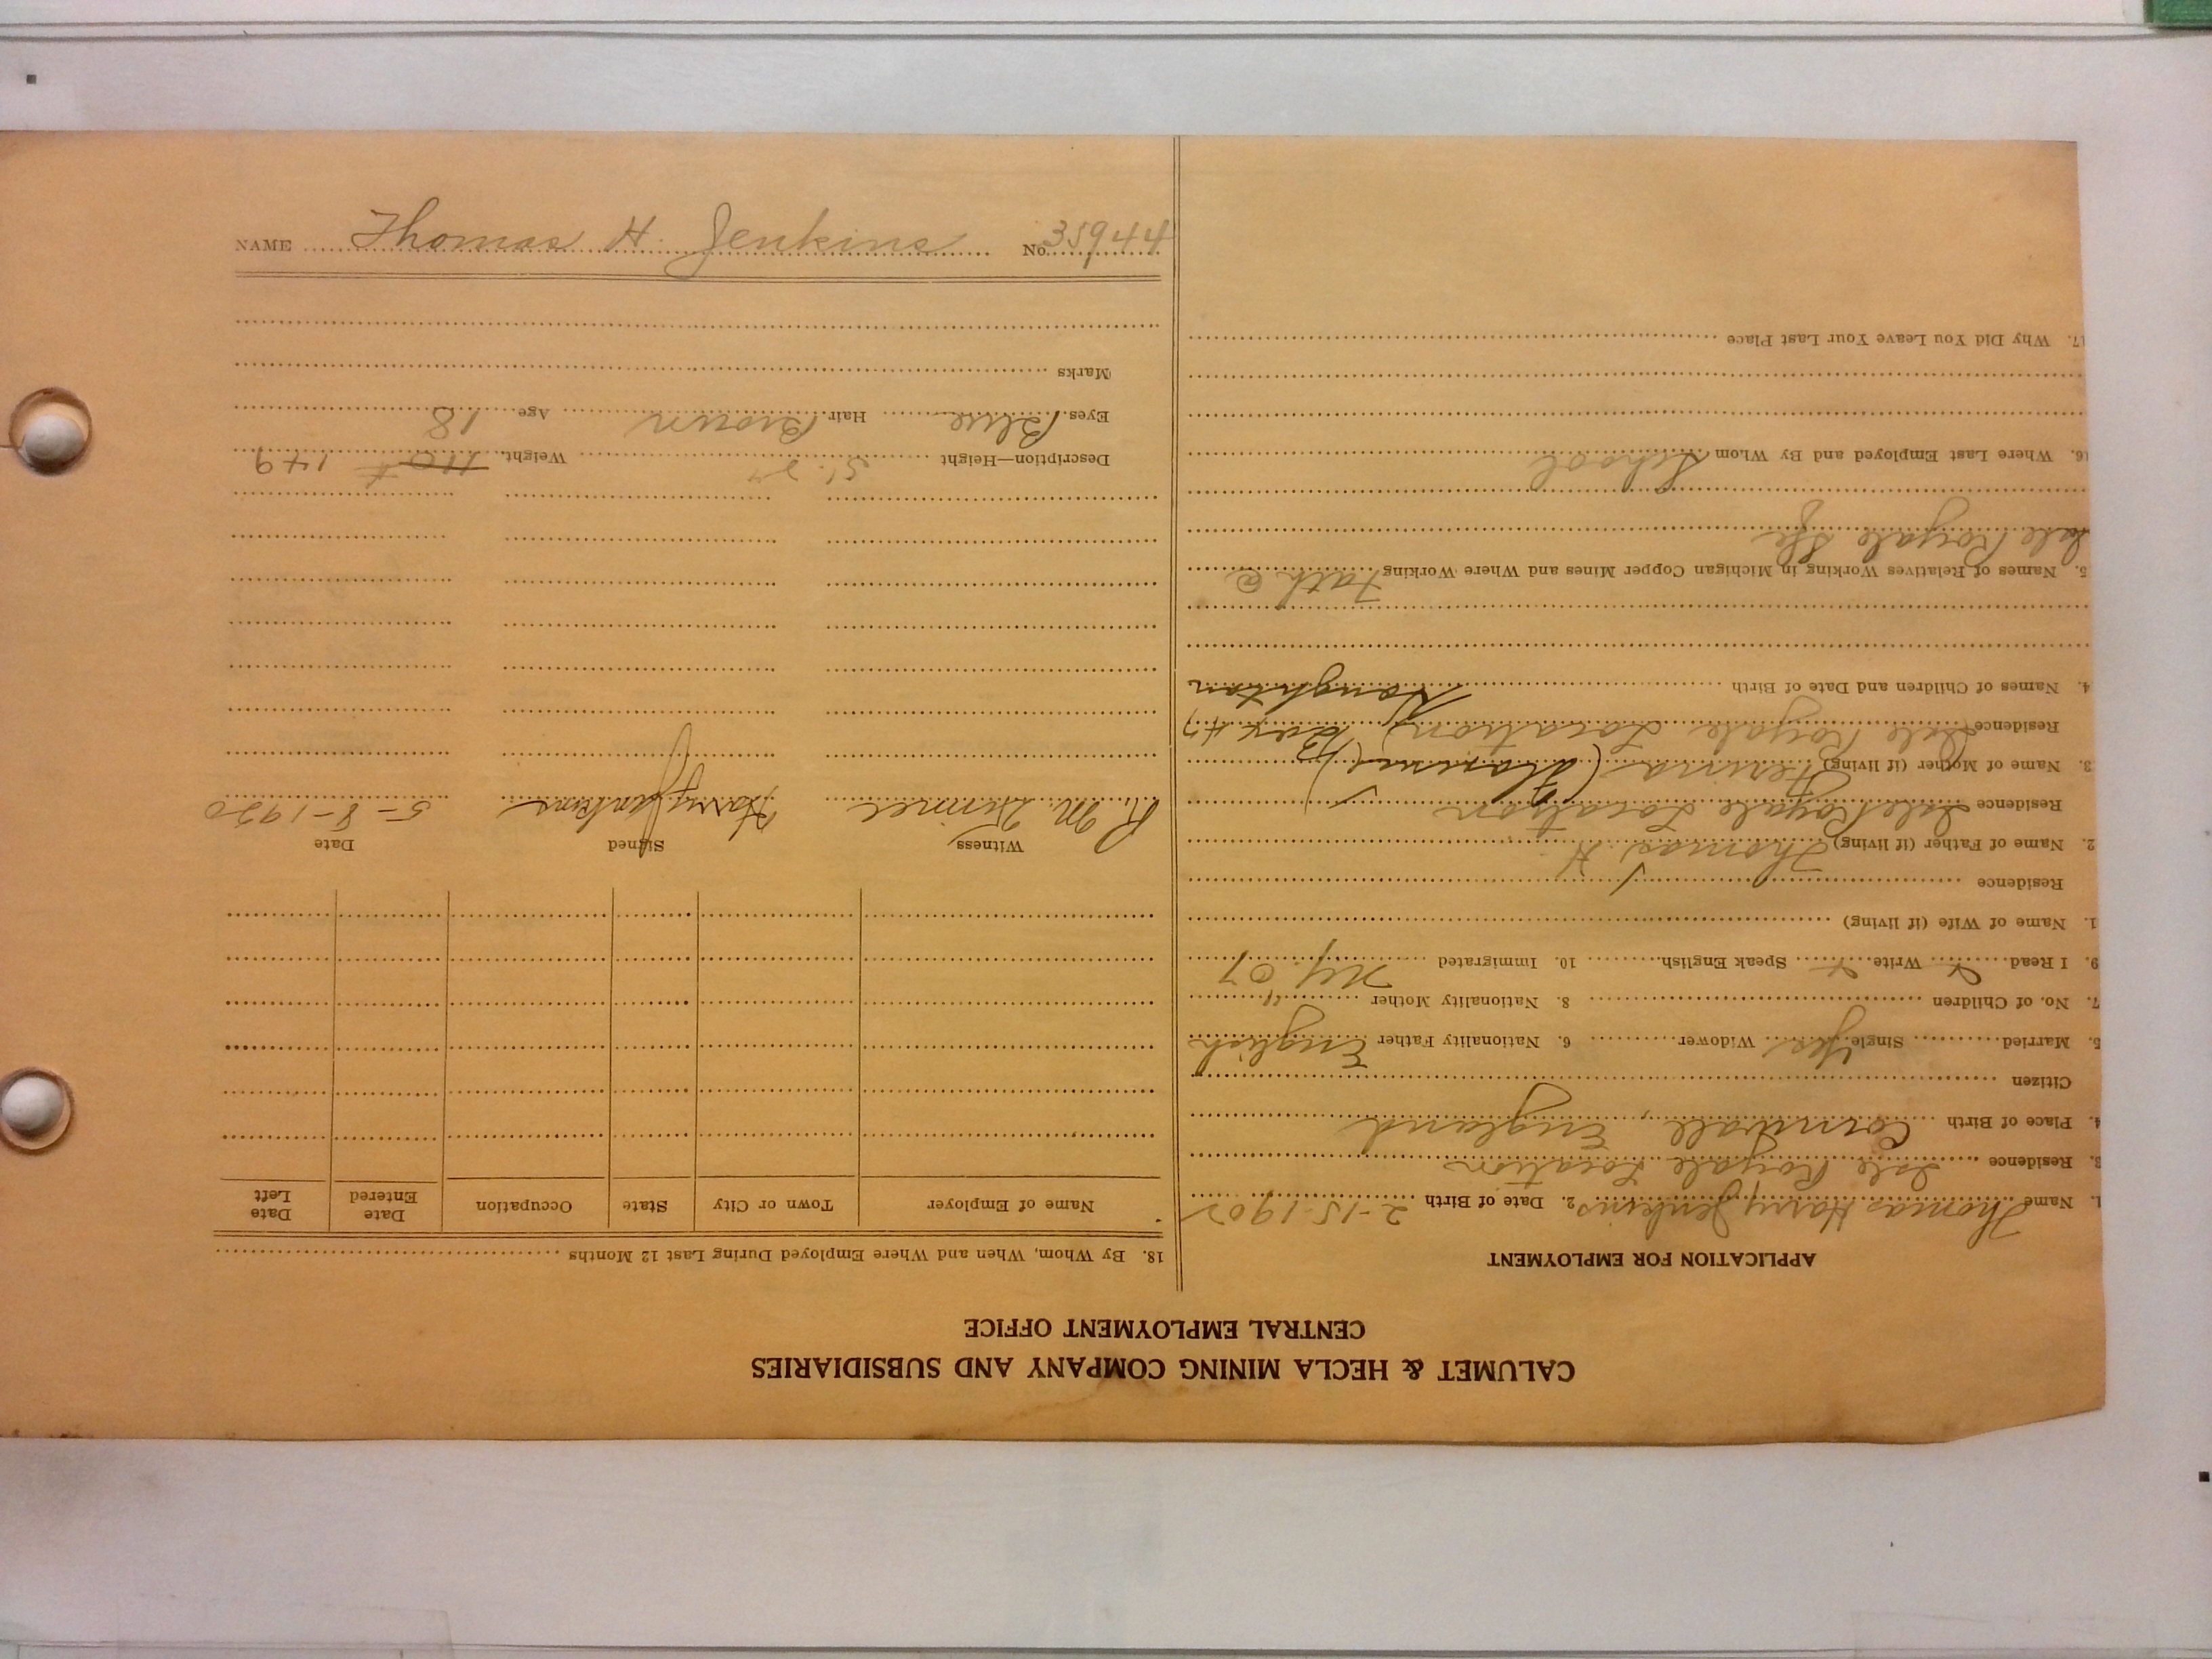 CALUMET & HECLA MINING COMPANY AND SUBSIDIARIES
CENTRAL EMPLOYMENT OFFICE
APPLICATION FOR EMPLOYMENT
1. Name Thomas Harry Jenkins 2. Date of Birth 2-15-1902
3. Residence Isle Royale Location
4. Place of Birth Cornwall, England
Citizen
5. Married Single Yes Widower 6. Nationality Father English
7. No. of Children 8. Nationality Mother "
9. I Read Write Speak English 10. Immigrated NY. 07
1. Name of Wife (if living)
Residence
2. Name of Father (if living) Thomas H.
Residence Isle Royale Location
3. Name of Mother (if living)
Residence Isle Royale Location) Box 47
4. Names of Children and Date of Birth Houghton
5. Names of Relatives Working in Michigan Copper Mines and Where Working Father @
Isle Royale
16. Where Last Employed and By Whom School
17. Why Did You Leave Your Last Place
18. By Whom, When and Where Employed During Last 12 Months
Name of Employer Town or City State Occupation Date Entered Date Left
Witness Signed Date
R. M. Harry Jenkins 5-8-1920
Description—Height Weight 149
Eyes Blue Hair Brown Age 18
Marks
NAME Thomas H. Jenkins No. 35944